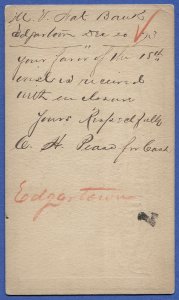 M. V. Nat Bank
Edgartown
your favor of the 15th
inst is received
with enclosure
Yours Respectfully
C. H. Pease for Cash
Edgartown